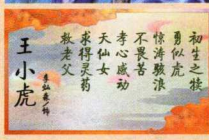 初生之犊
勇似虎
惊涛骇浪
不畏苦
孝心感动
天仙女
求得灵药
救老父
王小虎